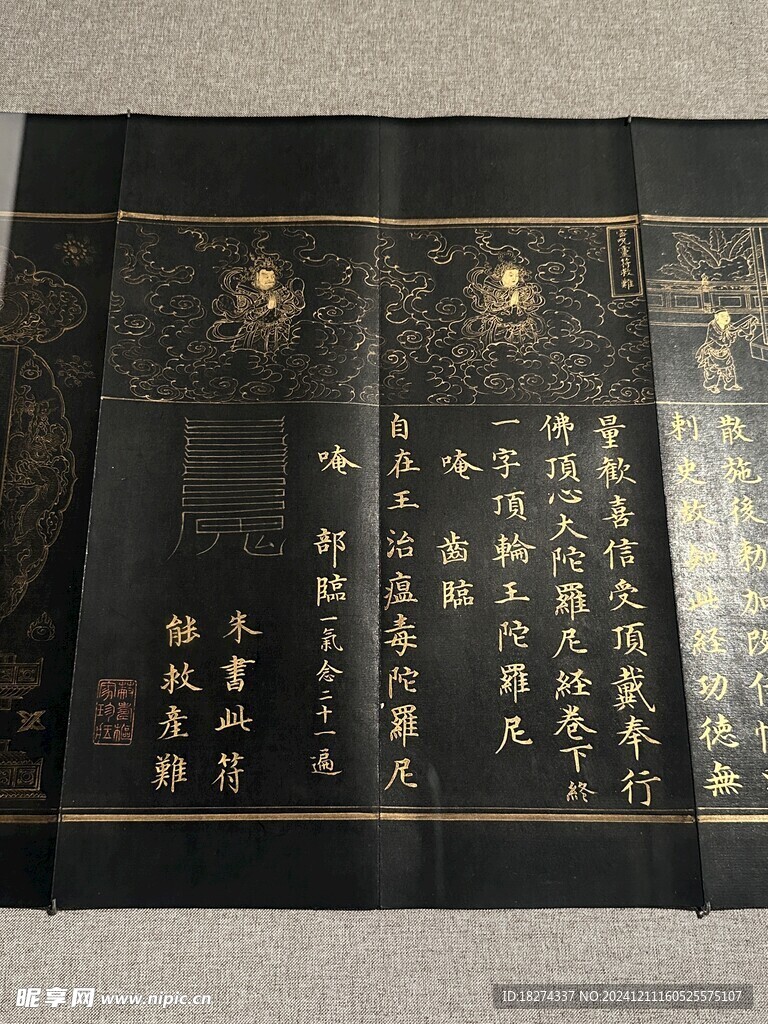 散施後勑加改任
刺史故知此經功德無
量歡喜信受頂戴奉行
佛頂心大陀羅尼經卷下 終
一字頂輪王陀羅尼
唵 齒臨
自在王治瘟毒陀羅尼
唵 部臨 一氣念二十一遍
朱書此符
能救產難
昵享网 www.nipic.cn
ID:18274337 NO:20241211160525575107